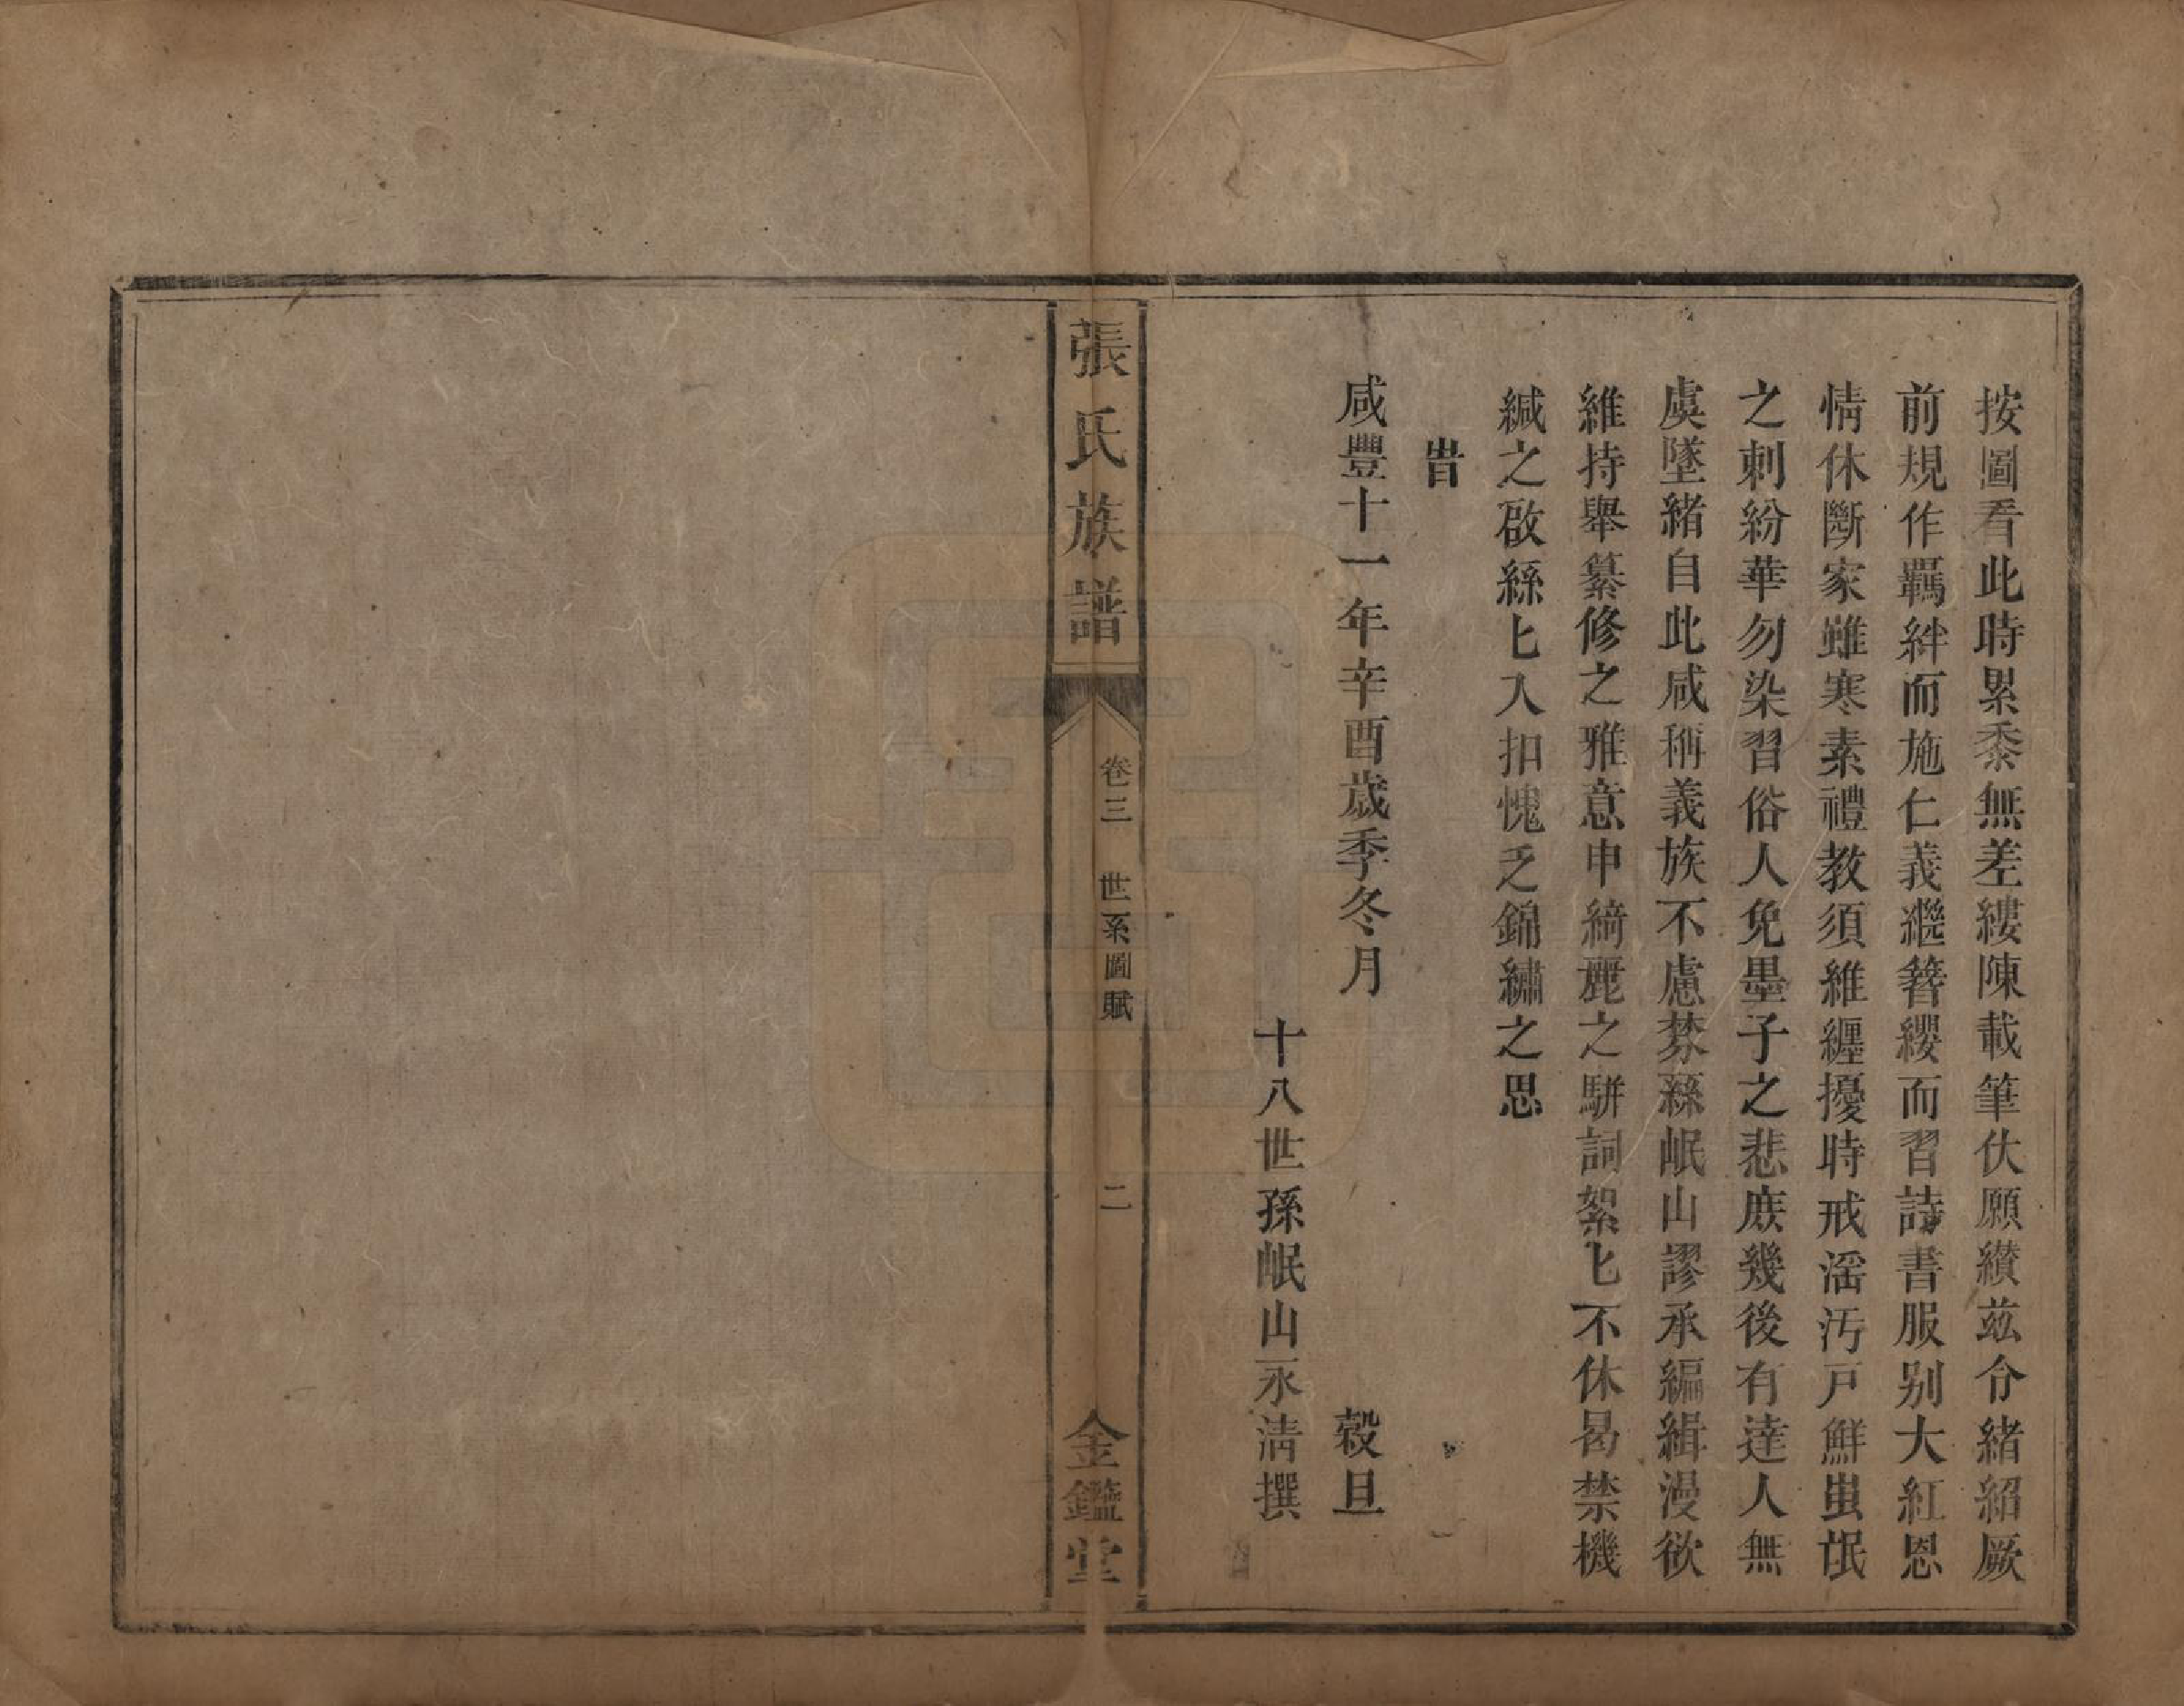 按圖看此時累黍無差縷陳載筆伏願纉茲令緒紹厥
前規作羈絆而施仁義繼簪纓而習詩書服别大紅恩
情休斷家雖寒素禮教須維纒擾時戒滛汚戸鮮蚩氓
之刺紛華勿染習俗人免墨子之悲庻幾後有達人無
虞墜緒自此咸稱義族不慮棼絲岷山謬承編緝漫欲
維持舉纂修之雅意申綺麗之駢詞絮匕不休曷禁機
緘之啟絲匕入扣愧乏錦繡之思
旹
咸豐十一年辛酉歲季冬月 穀旦
十八世孫岷山永淸撰
張氏族譜
卷三 世系圖賦
二
金鑑堂